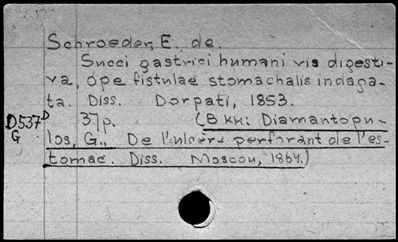 Schroeder, E. de.
Succi gastrici humani vis digesti-
va, ope fistulae stomachalis indaga-
ta. Diss. Dorpati, 1853.
D537D
G
37p. (В кн: Diamantopu-
los, G., De l'ulcère perforant de l'es-
tomac. Diss. Moscou, 1864.)